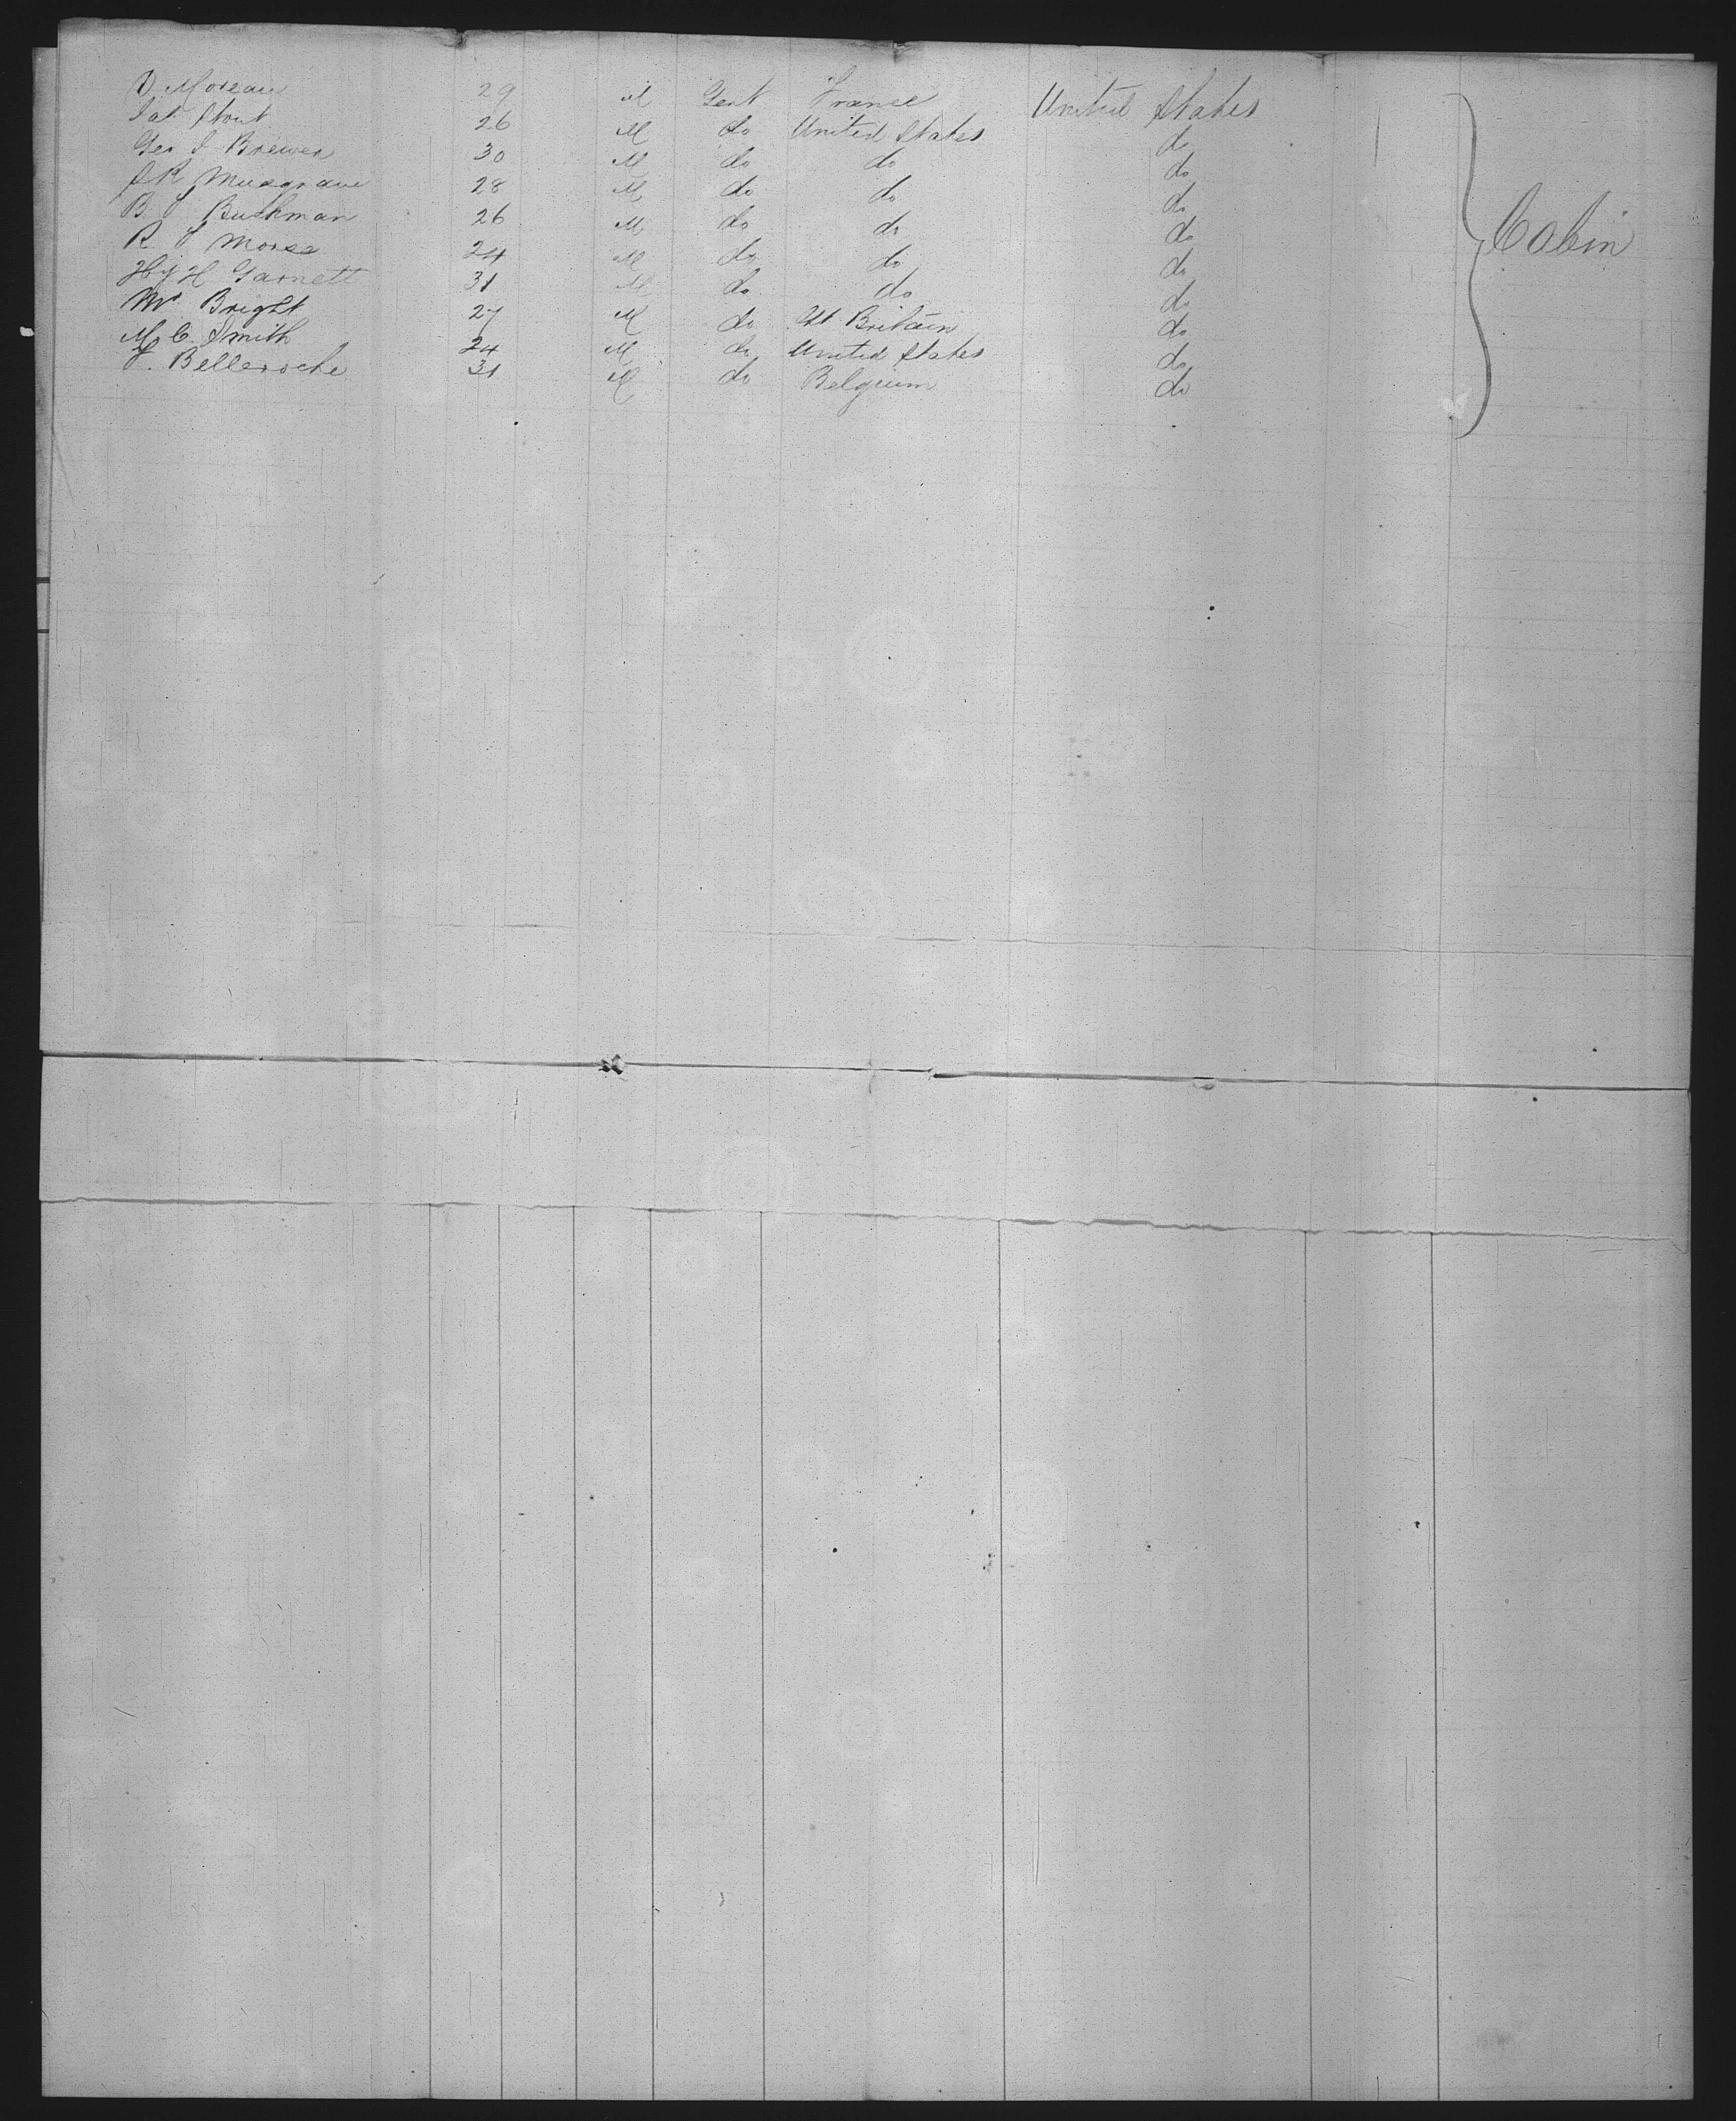 D. Moreau 29 M Gent France United States
Jas Stout 26 M do United States do
Geo S Brewer 30 M do do do
S R Musgrave 28 M do do do
B. S Buckman 26 M do do do
R. S Morse 24 M do do do
Hy H Garnett 31 M do do do
Mr Bright 27 M do Gt Britain do
M. C. Smith 24 M do United States do
J. Belleroche 31 M do Belgium do
Cabin